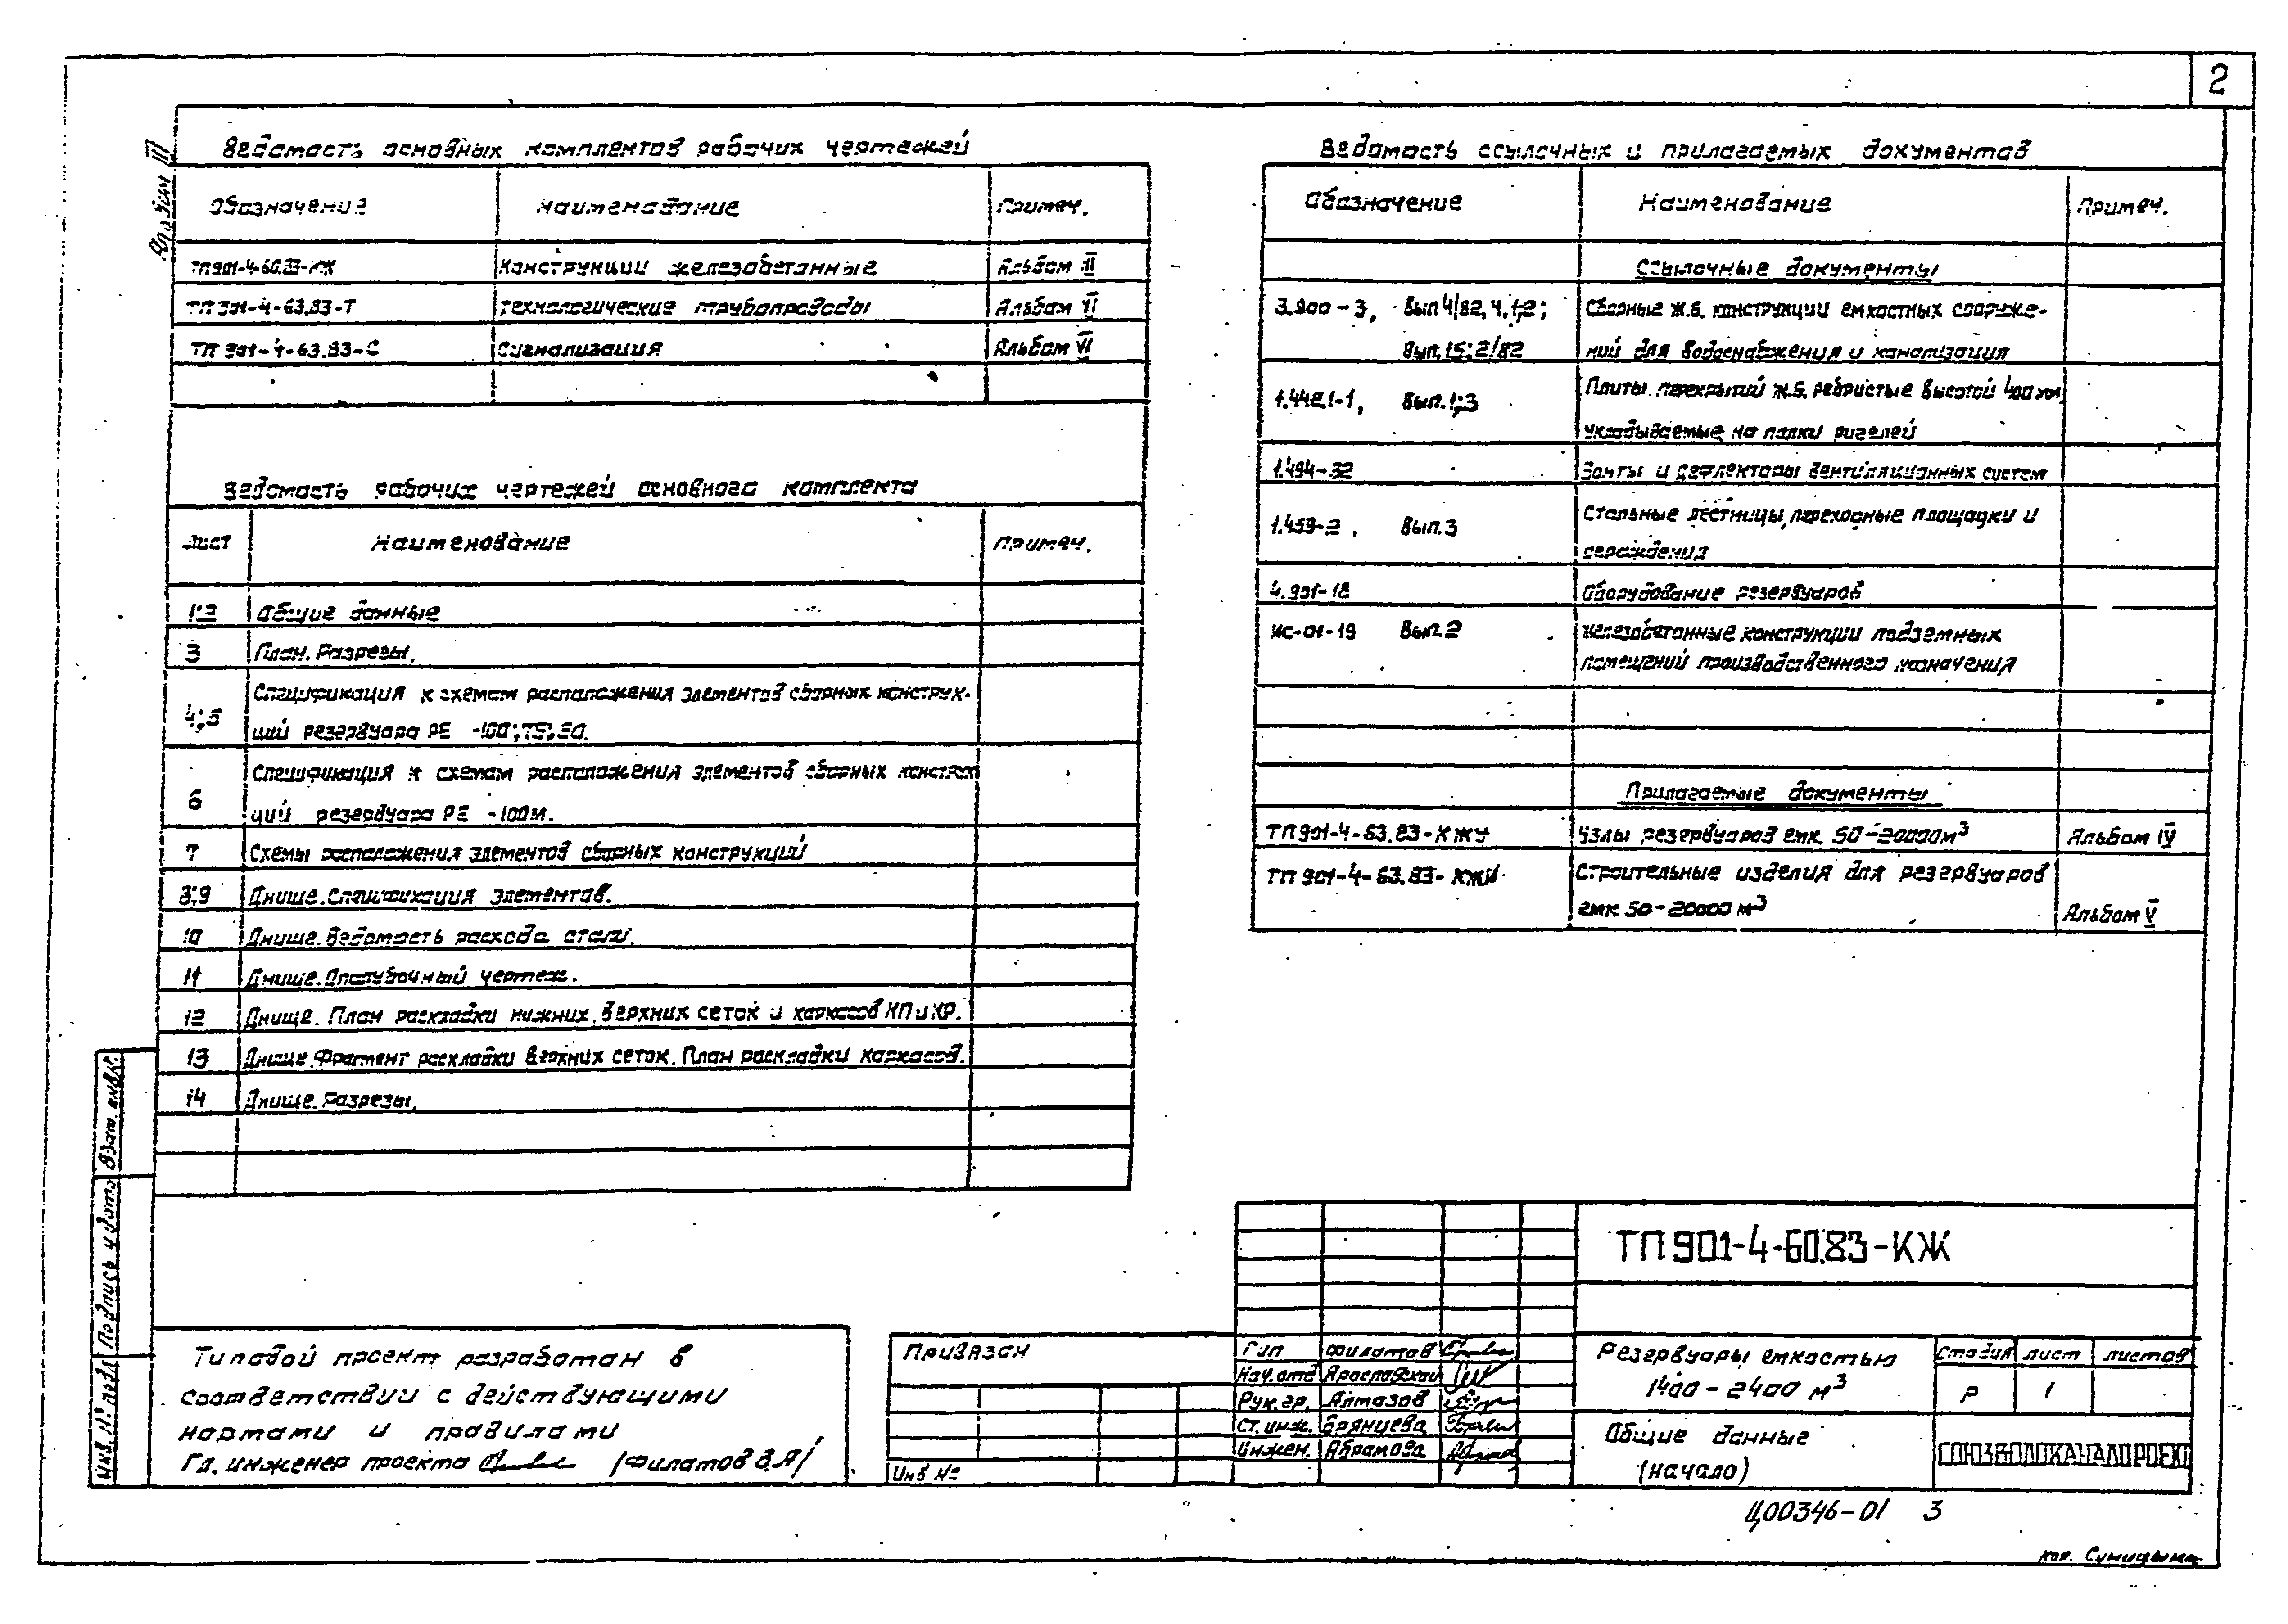 2
Альбом III
Ведомость основных комплектов рабочих чертежей
Обозначение Наименование Примеч.
ТП901-4-60.83-КЖ Конструкции железобетонные Альбом III
ТП 901-4-63.83-Т Технологические трубопроводы Альбом II
ТП 901-4-63.83-С Сигнализация Альбом VI
Ведомость рабочих чертежей основного комплекта
Лист Наименование Примеч.
1;2 Общие данные
3 План. Разрезы.
Спецификация к схемам расположения элементов сборных конструк-
4;5
ций резервуара РЕ -100; 75; 50.
Спецификация к схемам расположения элементов сборных конструк
6
ций резервуара РЕ -100м.
7 Схемы расположения элементов сборных конструкций
8;9 Днище. Спецификация элементов.
10 Днище. Ведомость расхода стали.
11 Днище. Опалубочный чертеж.
12 Днище. План раскладки нижних, верхних сеток и каркасов КП и КР.
13 Днище. Фрагмент раскладки верхних сеток. План раскладки каркасов.
14 Днище. Разрезы.
Ведомость ссылочных и прилагаемых документов
Обозначение Наименование Примеч.
Ссылочные документы
3.900-3, Вып 4/82, ч. 1,2; Сборные ж.б. конструкции емкостных сооруже-
Вып. 15; 2/82 ний для водоснабжения и канализация
1.442.1-1, Вып. 1;3 Плиты перекрытий ж.б. ребристые высотой 400 мм,
укладываемые на полки ригелей
1.494-32 Зонты и дефлекторы вентиляционных систем
1.459-2, Вып. 3 Стальные лестницы, переходные площадки и
ограждения
4.901-18 Оборудование резервуаров
ИС-01-19 Вып. 2 Железобетонные конструкции подземных
помещений производственного назначения
Прилагаемые документы
ТП901-4-63.83-КЖУ Узлы резервуаров емк. 50-20000м³ Альбом IV
ТП 901-4-63.83-КЖИ Строительные изделия для резервуаров
емк 50-20000 м³ Альбом V
Взам. инв. №
Подпись и дата
Инв. № подл
Типовой проект разработан в
соответствии с действующими
нормами и правилами
Гл. инженер проекта /Филатов В.Я/
Привязан
Инв №
Гип Филатов
Нач. отд Ярославский
Рук. гр. Алмазов
Ст. инж. Брянцева
Инжен. Абрамова
ТП901-4-60.83-КЖ
Резервуары емкостью
1400-2400 м³
Стадия Лист Листов
Р 1
Общие данные
(начало)
СОЮЗВОДОКАНАЛПРОЕКТ
Ц00346-01 3
кор. Синицына